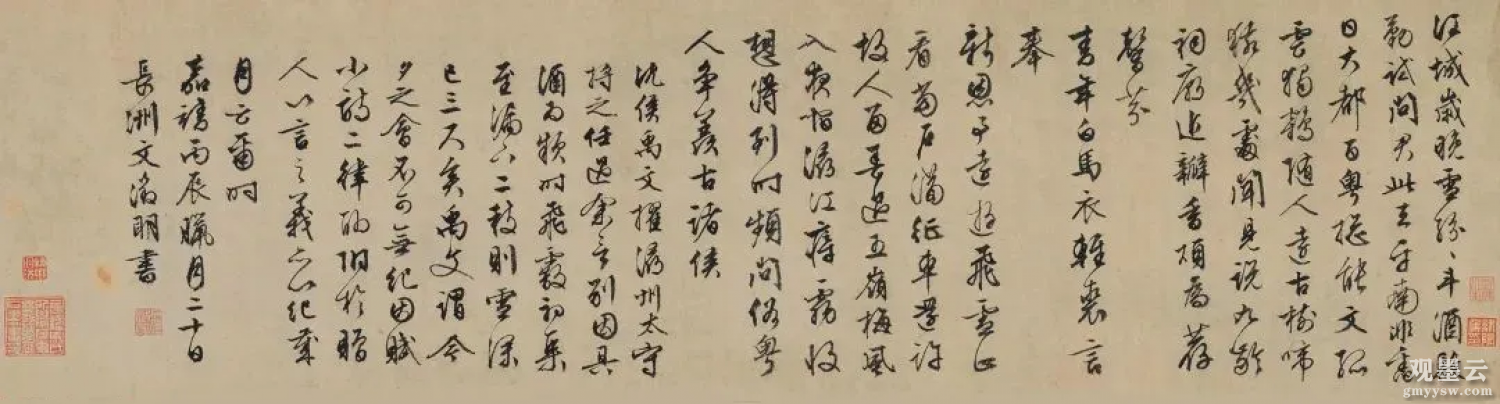 江城歲晚雪紛〻斗酒殷
勤試問君此去
日大都百粵捴能文孤
雲獨鶴隨人遠古樹啼
猿幾處聞見說九歌
祠廟近瓣香煩為薦
馨芬
青年白馬衣輕裘言
奉
新恩事遠遊飛雪正
看當戶滿征車還許
故人留春過五嶺梅風
入夜江瘴霧收
想得到時頻問俗粵
人爭羨古諸侯
沈侯禹文擢潯州太守
將之任過余言別因具
酒為歡時飛霰初集
至漏下二鼓則雪深
已三尺矣禹文謂今
夕之會不可無紀因賦
小詩二律附於贈
人以言之義亦以紀歲
月云爾時
嘉靖丙辰臘月二十日
長洲文徵明書
观墨云
gmyysw.com